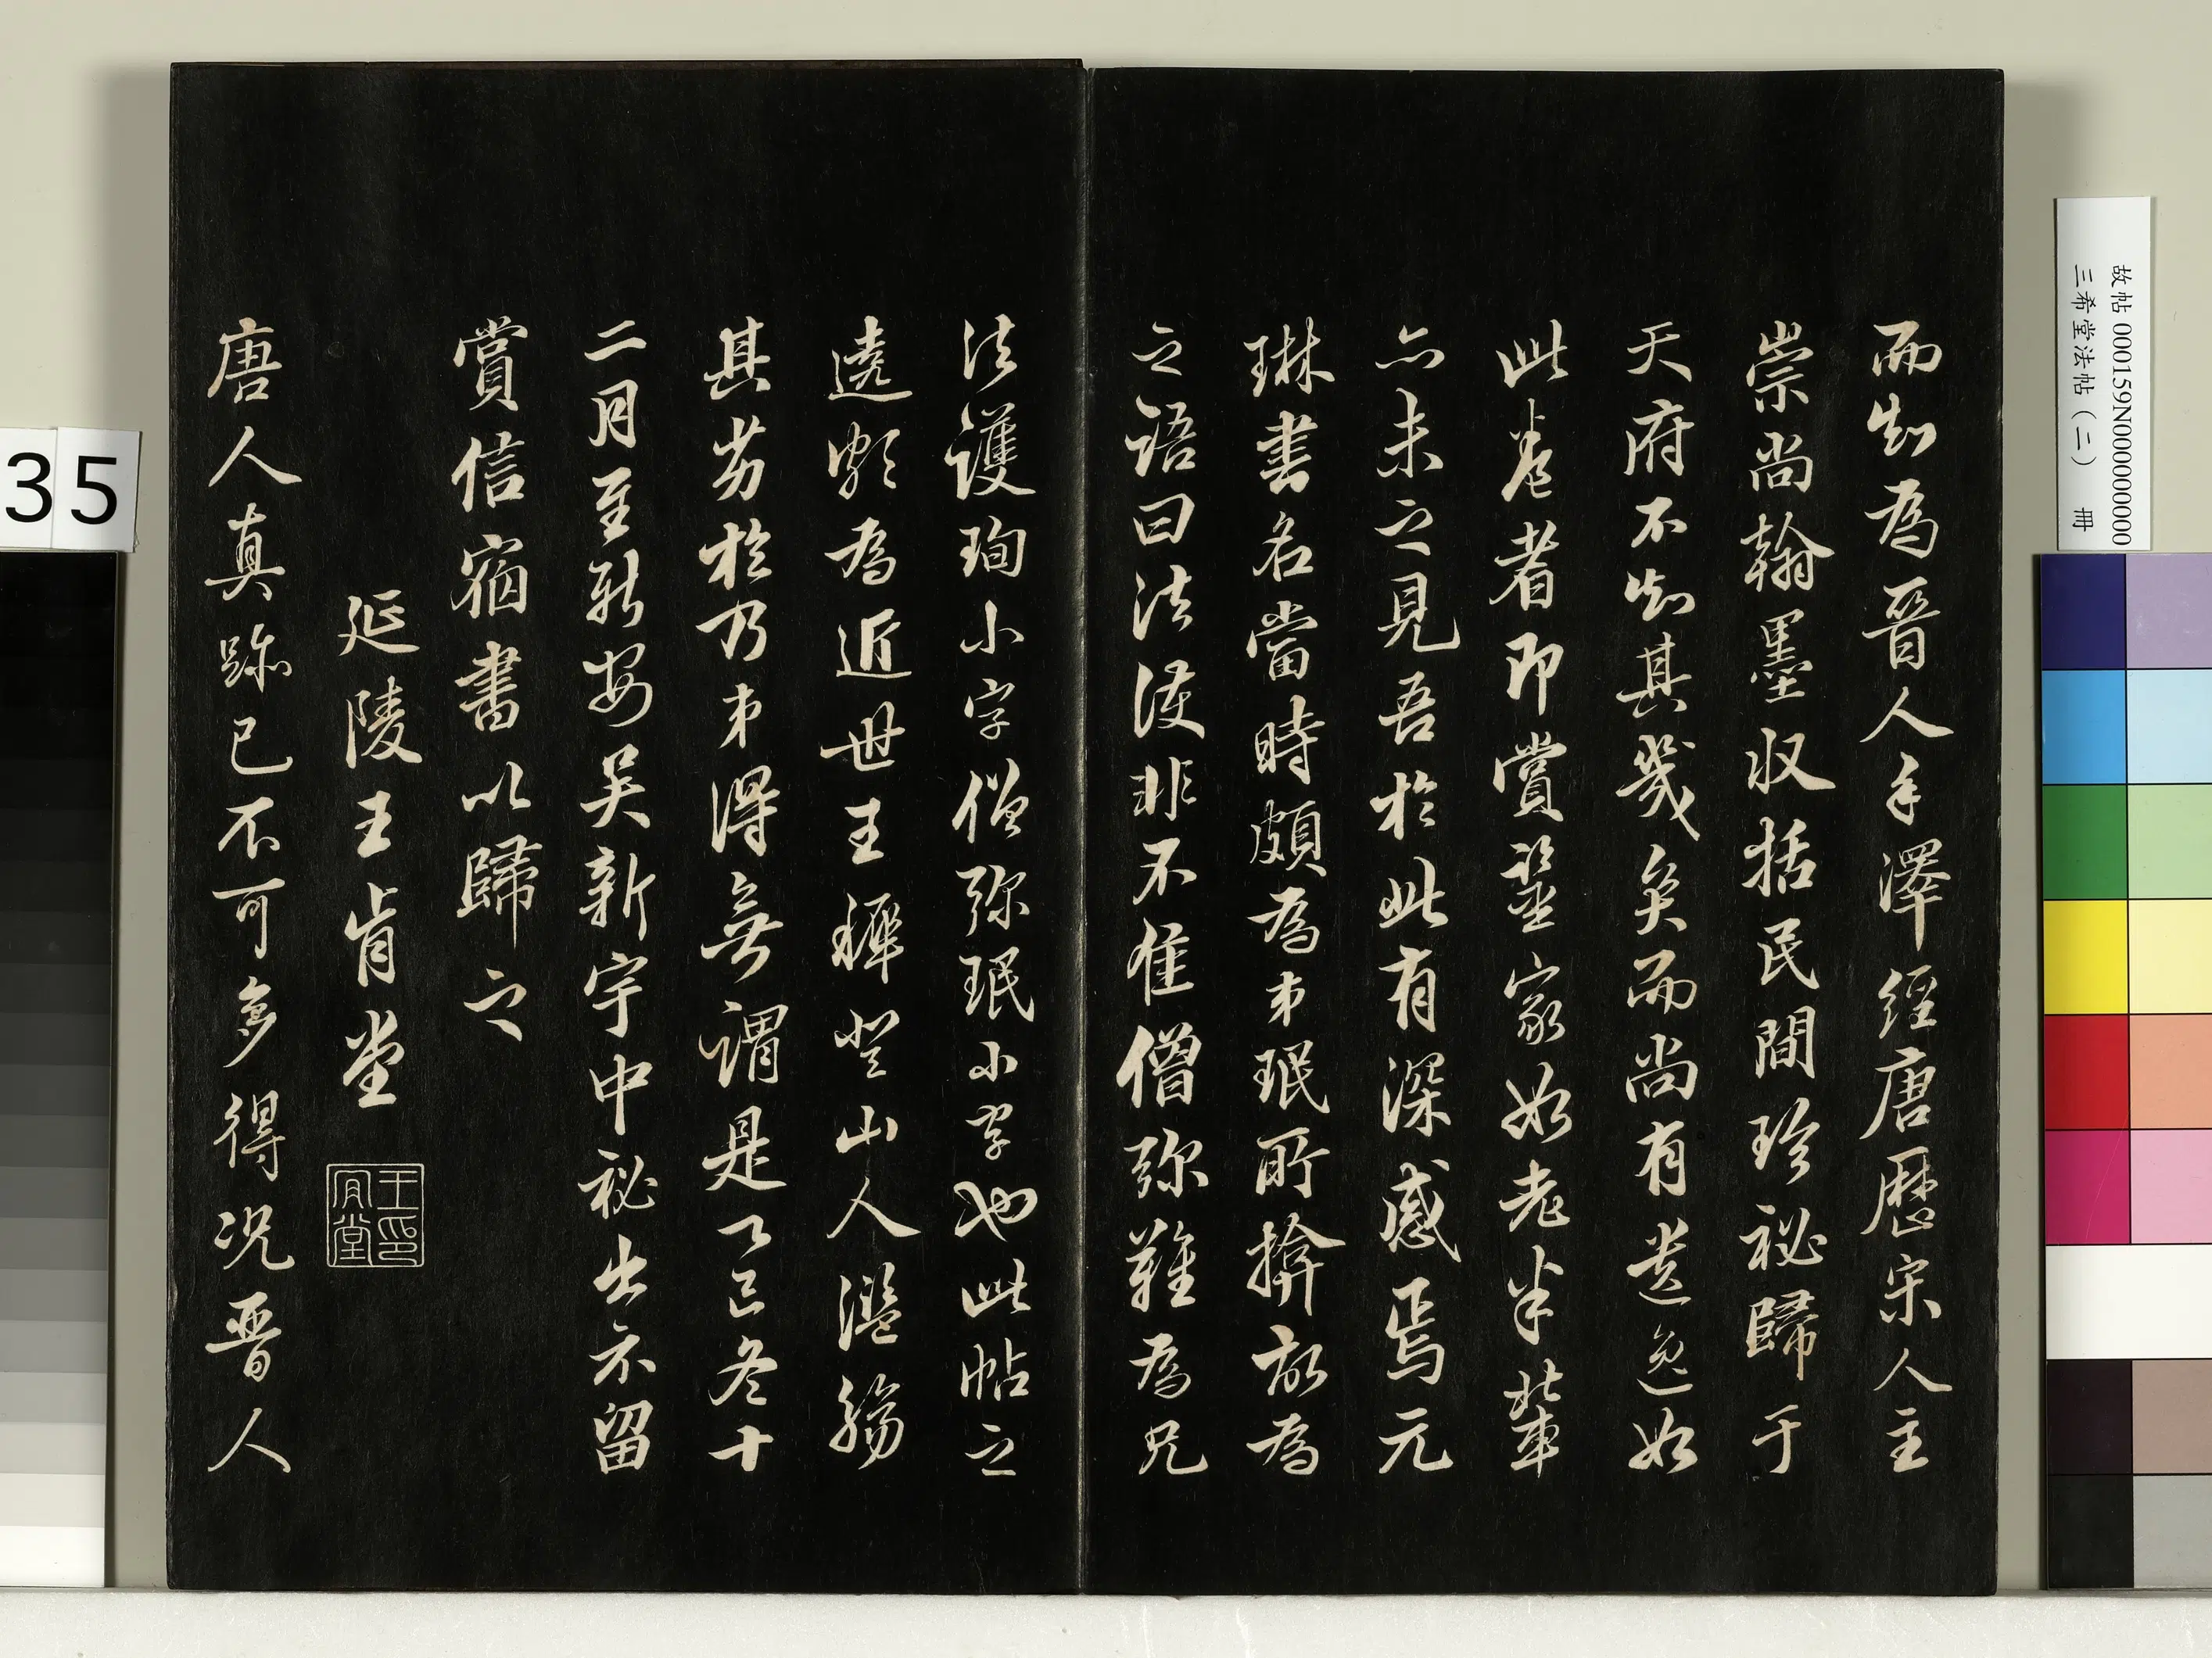 而知為晉人手澤經唐歷宋人主
崇尚翰墨収括民間珍祕歸于
天府不知其幾矣而尚有遺逸如
此卷者即賞鑒家如老米輩
亦未之見吾於此有深感焉元
琳書名當時頗為弟珉所揜故為
之語曰法護非不佳僧弥難為兄
法護珣小字僧弥珉小字也此帖之
遶卿為近世王穉登山人濫觴
其劣於乃弟得無謂是乙巳冬十
二月至新安吳新宇中祕出示留
賞信宿書以歸之
延陵王肯堂
王肯堂印
唐人真跡已不可多得況晋人
故帖 000159N000000000
三希堂法帖(二) 冊
35